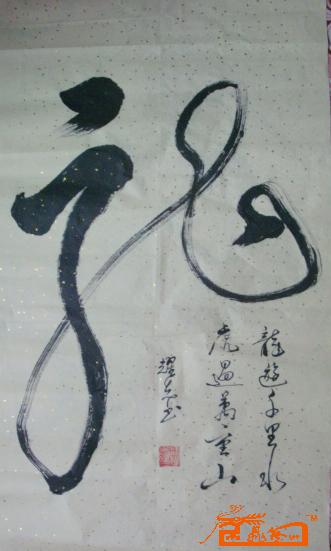 龍
龍遊千里水
虎過萬重山